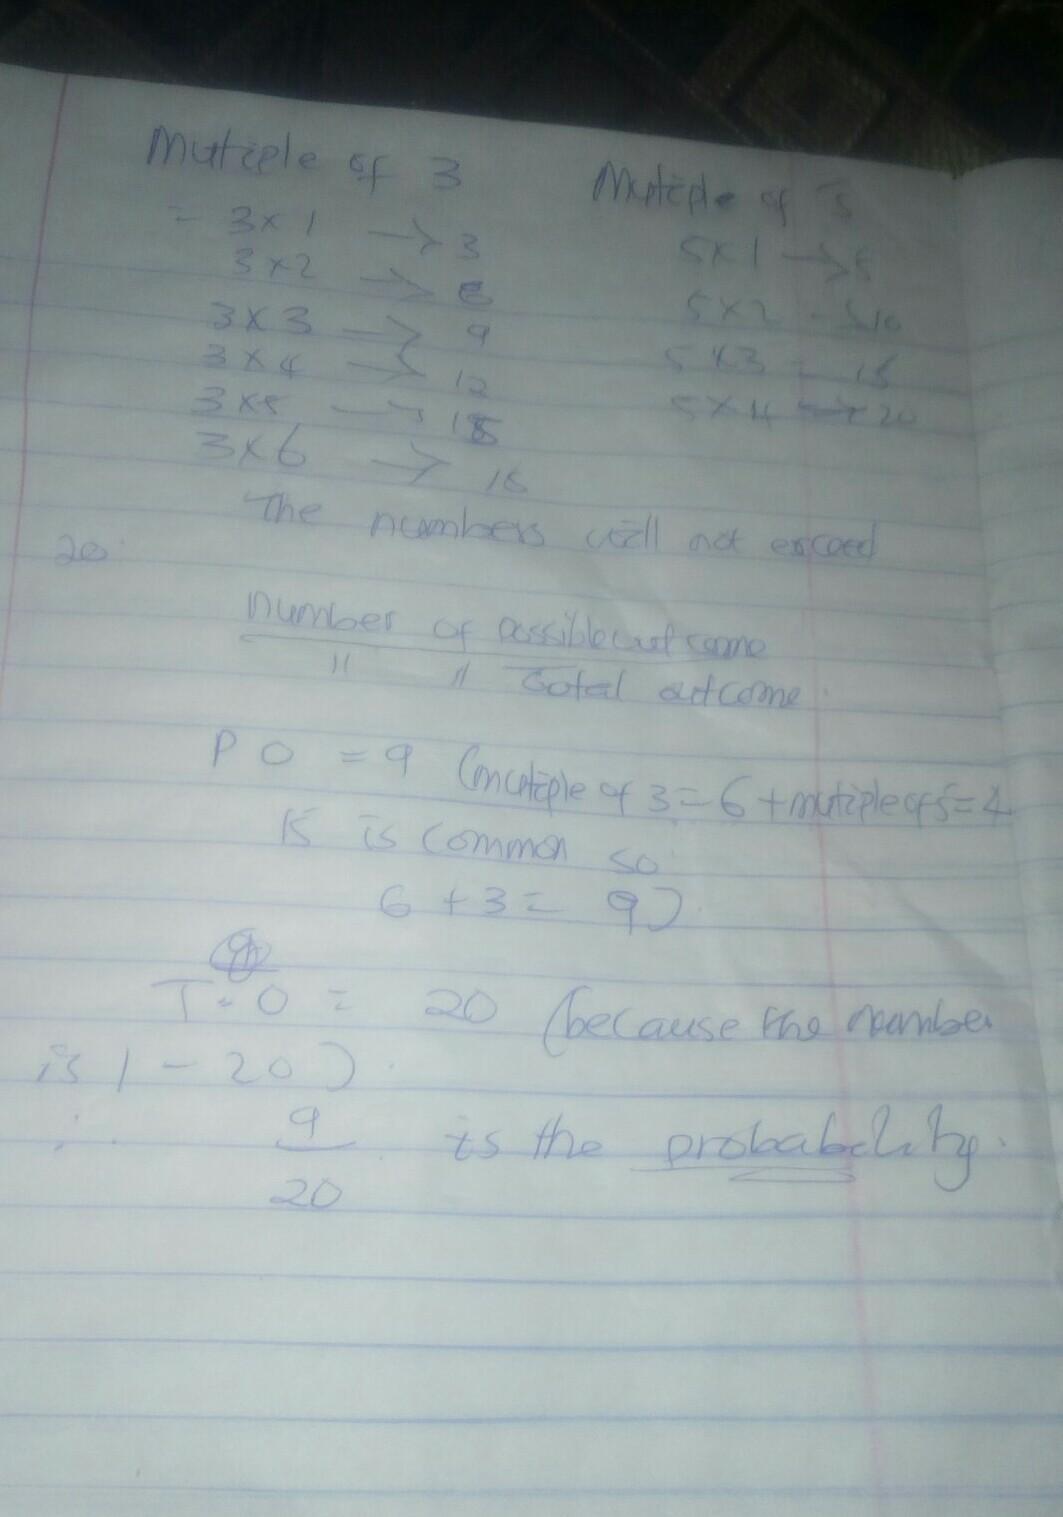 Mutiple of 3 Mutiple of 5
= 3 x 1 → 3 5 x 1 → 5
3 x 2 → 6 5 x 2 → 10
3 x 3 → 9 5 x 3 = 15
3 x 4 → 12 5 x 4 → 20
3 x 5 → 15
3 x 6 → 18
The numbers will not exceed
20
number of possible outcome
" " Total outcome.
P O = 9 (mutiple of 3 = 6 + mutiple of 5 = 4
15 is common so
6 + 3 = 9)
T.O = 20 (because the number
is 1 - 20).
∴ 9 is the probability.
20